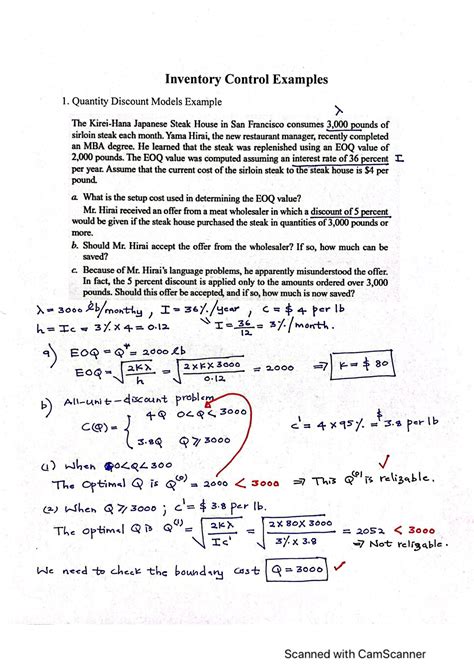 Inventory Control Examples
1. Quantity Discount Models Example
λ
The Kirei-Hana Japanese Steak House in San Francisco consumes 3,000 pounds of
sirloin steak each month. Yama Hirai, the new restaurant manager, recently completed
an MBA degree. He learned that the steak was replenished using an EOQ value of
2,000 pounds. The EOQ value was computed assuming an interest rate of 36 percent I
per year. Assume that the current cost of the sirloin steak to the steak house is $4 per
pound.
a. What is the setup cost used in determining the EOQ value?
Mr. Hirai received an offer from a meat wholesaler in which a discount of 5 percent
would be given if the steak house purchased the steak in quantities of 3,000 pounds or
more.
b. Should Mr. Hirai accept the offer from the wholesaler? If so, how much can be
saved?
c. Because of Mr. Hirai's language problems, he apparently misunderstood the offer.
In fact, the 5 percent discount is applied only to the amounts ordered over 3,000
pounds. Should this offer be accepted, and if so, how much is now saved?
λ = 3000 lb/monthy , I = 36%/year , C = $ 4 per lb
h = Ic = 3% × 4 = 0.12 I = 36/12 = 3%/month.
a) EOQ = Q* = 2000 lb
EOQ = √(2Kλ/h) = √(2×K×3000/0.12) = 2000 ⇒ K = $ 80
b) All-unit-discount problem
C(Q) = { 4Q 0<Q<3000
3.8Q Q ≥ 3000
c' = 4 × 95% = $3.8 per lb
(1) When 0<Q<300
The Optimal Q is Q(0) = 2000 < 3000 ⇒ This Q(0) is relizable. ✓
(2) When Q ≥ 3000 ; c' = $ 3.8 per lb.
The optimal Q is Q(1) = √(2Kλ/Ic') = √(2×80×3000/3%×3.8) = 2052 < 3000
⇒ Not religable.
We need to check the boundary cost Q = 3000 ✓
Scanned with CamScanner